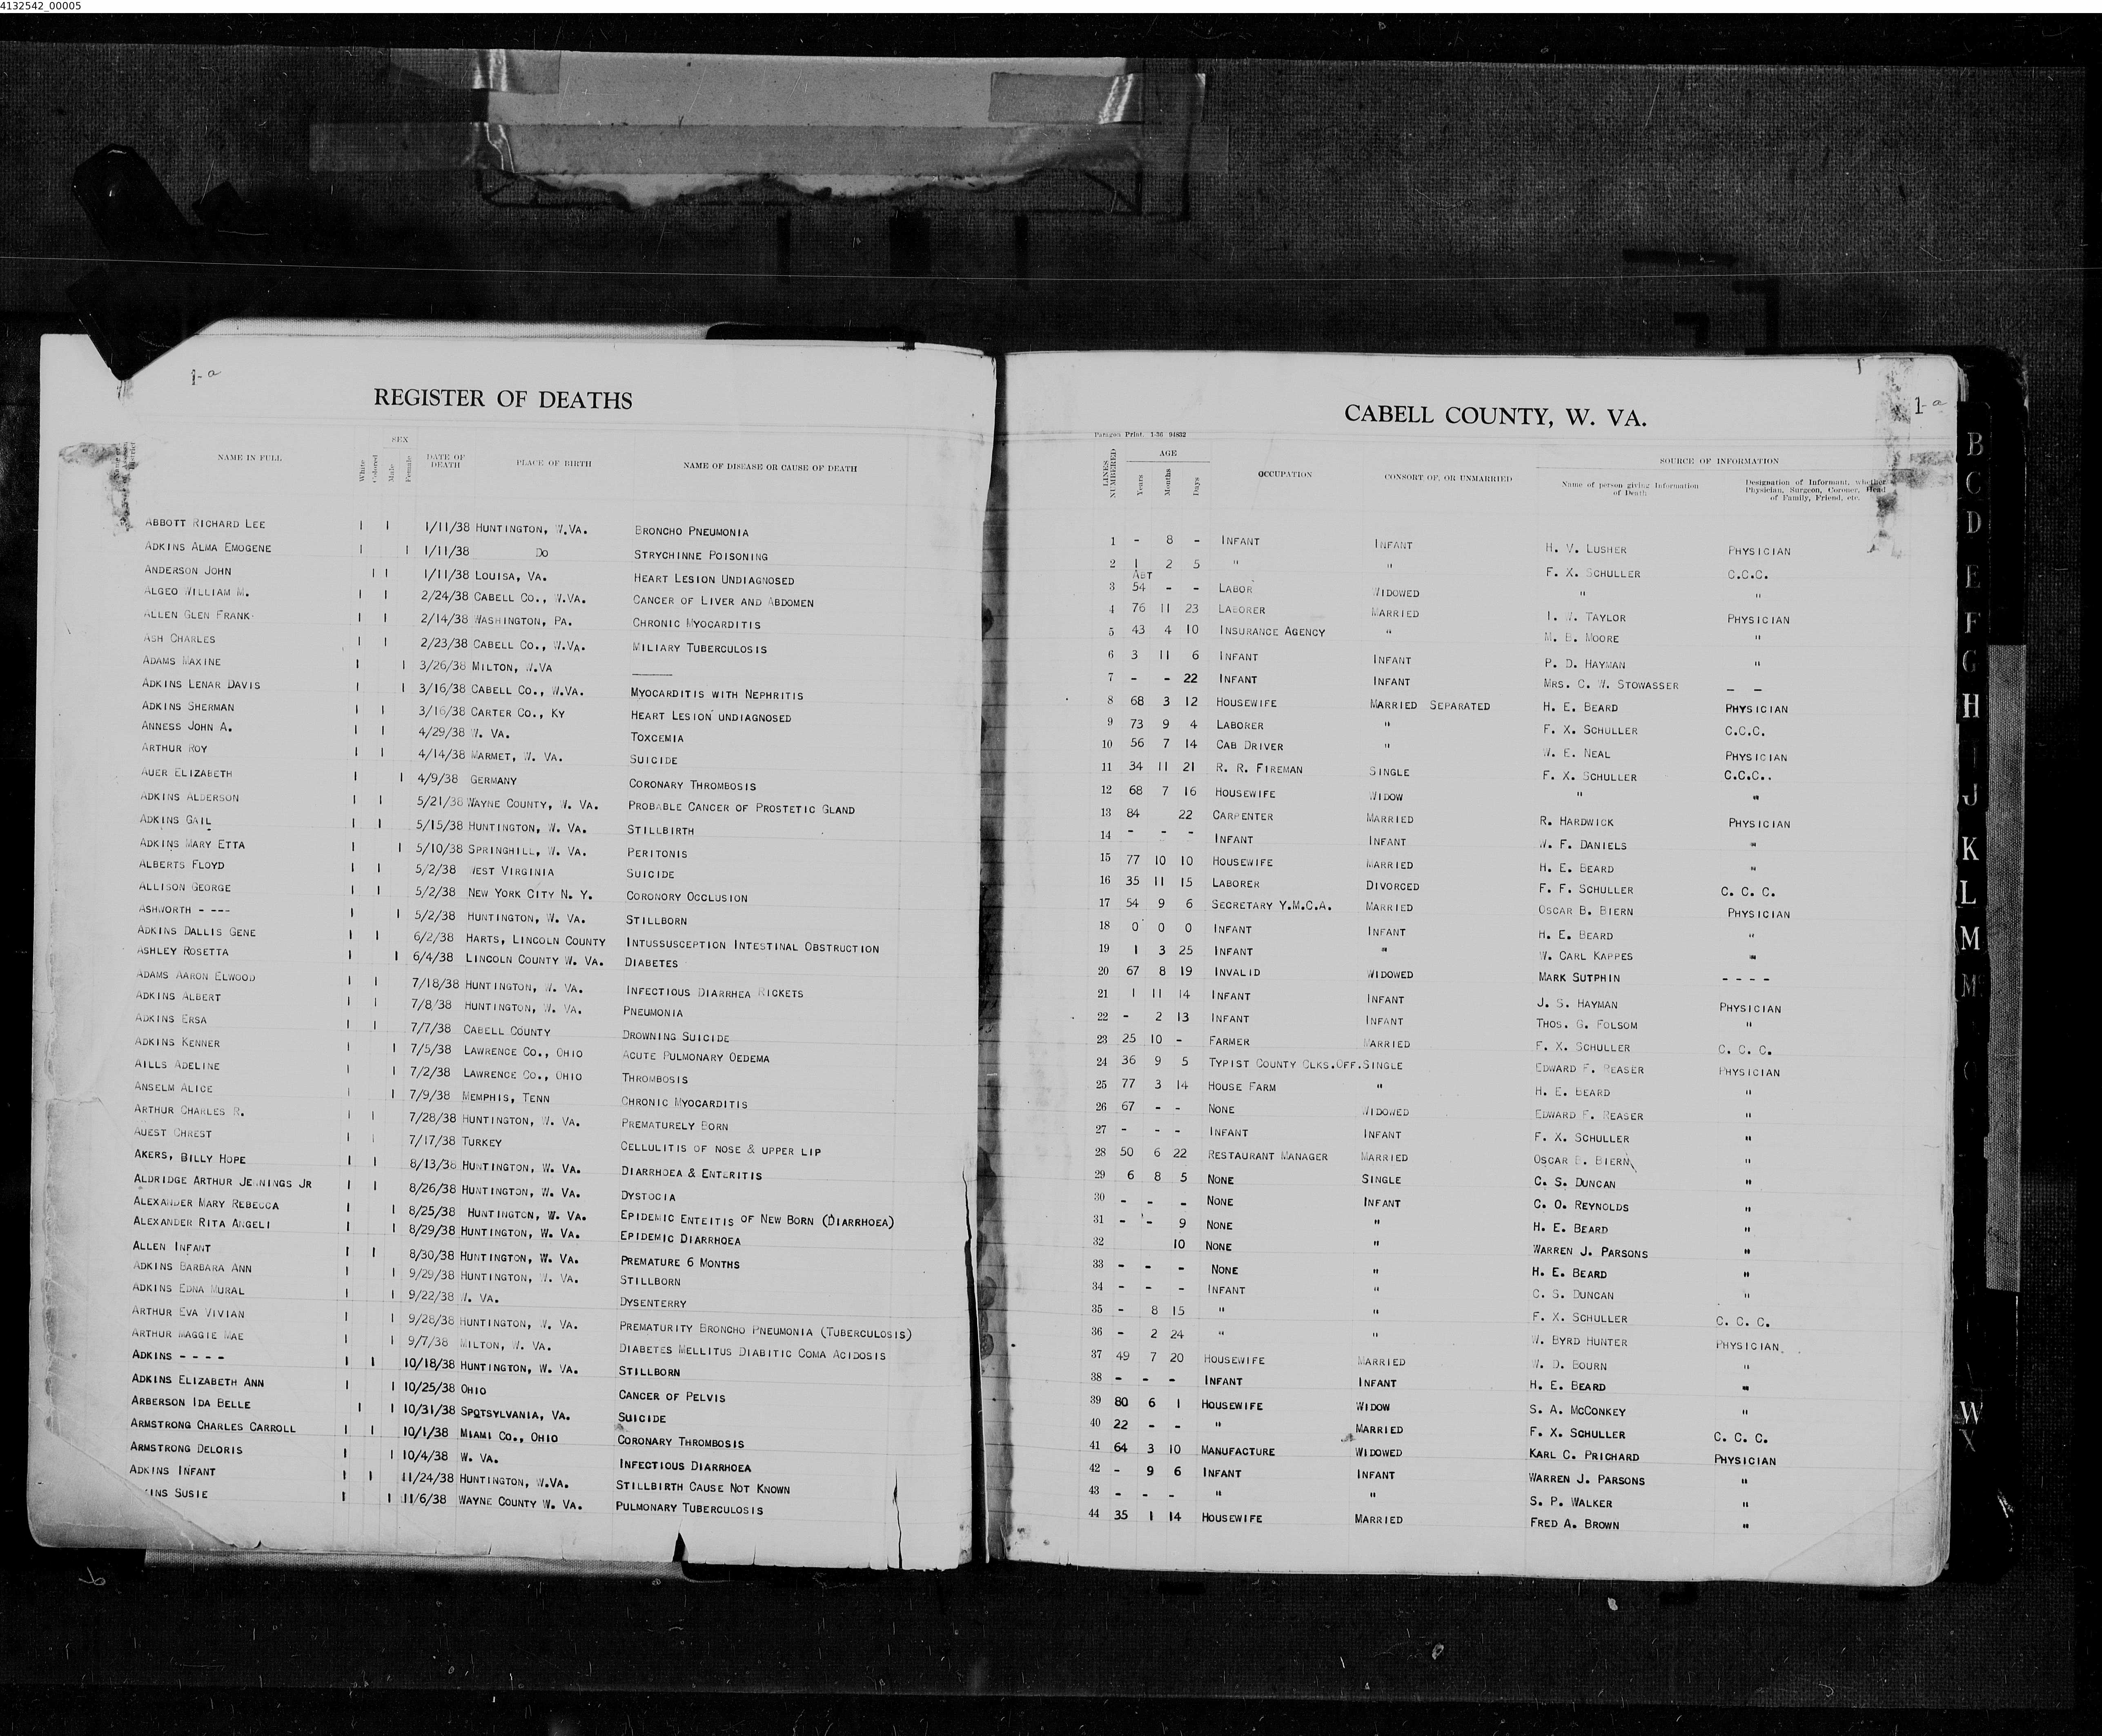 4132542_00005
1-a
REGISTER OF DEATHS
NAME IN FULL White Colored SEX Male Female DATE OF DEATH PLACE OF BIRTH NAME OF DISEASE OR CAUSE OF DEATH
ABBOTT RICHARD LEE 1 1 1/11/38 HUNTINGTON, W.VA. BRONCHO PNEUMONIA
ADKINS ALMA EMOGENE 1 1 1/11/38 DO STRYCHINNE POISONING
ANDERSON JOHN 1 1 1/11/38 LOUISA, VA. HEART LESION UNDIAGNOSED
ALGEO WILLIAM M. 1 1 2/24/38 CABELL CO., W.VA. CANCER OF LIVER AND ABDOMEN
ALLEN GLEN FRANK 1 1 2/14/38 WASHINGTON, PA. CHRONIC MYOCARDITIS
ASH CHARLES 1 1 2/23/38 CABELL CO., W.VA. MILIARY TUBERCULOSIS
ADAMS MAXINE 1 1 3/26/38 MILTON, W.VA ———
ADKINS LENAR DAVIS 1 1 3/16/38 CABELL CO., W.VA. MYOCARDITIS WITH NEPHRITIS
ADKINS SHERMAN 1 1 3/16/38 CARTER CO., KY HEART LESION UNDIAGNOSED
ANNESS JOHN A. 1 1 4/29/38 W. VA. TOXCEMIA
ARTHUR ROY 1 1 4/14/38 MARMET, W. VA. SUICIDE
AUER ELIZABETH 1 1 4/9/38 GERMANY CORONARY THROMBOSIS
ADKINS ALDERSON 1 1 5/21/38 WAYNE COUNTY, W. VA. PROBABLE CANCER OF PROSTETIC GLAND
ADKINS GAIL 1 1 5/15/38 HUNTINGTON, W. VA. STILLBIRTH
ADKINS MARY ETTA 1 1 5/10/38 SPRINGHILL, W. VA. PERITONIS
ALBERTS FLOYD 1 1 5/2/38 WEST VIRGINIA SUICIDE
ALLISON GEORGE 1 1 5/2/38 NEW YORK CITY N. Y. CORONORY OCCLUSION
ASHWORTH - --- 1 1 5/2/38 HUNTINGTON, W. VA. STILLBORN
ADKINS DALLIS GENE 1 1 6/2/38 HARTS, LINCOLN COUNTY INTUSSUSCEPTION INTESTINAL OBSTRUCTION
ASHLEY ROSETTA 1 1 6/4/38 LINCOLN COUNTY W. VA. DIABETES
ADAMS AARON ELWOOD 1 1 7/18/38 HUNTINGTON, W. VA. INFECTIOUS DIARRHEA RICKETS
ADKINS ALBERT 1 1 7/8/38 HUNTINGTON, W. VA. PNEUMONIA
ADKINS ERSA 1 1 7/7/38 CABELL COUNTY DROWNING SUICIDE
ADKINS KENNER 1 1 7/5/38 LAWRENCE CO., OHIO ACUTE PULMONARY OEDEMA
AILLS ADELINE 1 1 7/2/38 LAWRENCE CO., OHIO THROMBOSIS
ANSELM ALICE 1 1 7/9/38 MEMPHIS, TENN CHRONIC MYOCARDITIS
ARTHUR CHARLES R. 1 1 7/28/38 HUNTINGTON, W. VA. PREMATURELY BORN
AUEST CHREST 1 1 7/17/38 TURKEY CELLULITIS OF NOSE & UPPER LIP
AKERS, BILLY HOPE 1 1 8/13/38 HUNTINGTON, W. VA. DIARRHOEA & ENTERITIS
ALDRIDGE ARTHUR JENNINGS JR 1 1 8/26/38 HUNTINGTON, W. VA. DYSTOCIA
ALEXANDER MARY REBECCA 1 1 8/25/38 HUNTINGTON, W. VA. EPIDEMIC ENTEITIS OF NEW BORN (DIARRHOEA)
ALEXANDER RITA ANGELI 1 1 8/29/38 HUNTINGTON, W. VA. EPIDEMIC DIARRHOEA
ALLEN INFANT 1 1 8/30/38 HUNTINGTON, W. VA. PREMATURE 6 MONTHS
ADKINS BARBARA ANN 1 1 9/29/38 HUNTINGTON, W. VA. STILLBORN
ADKINS EDNA MURAL 1 1 9/22/38 W. VA. DYSENTERRY
ARTHUR EVA VIVIAN 1 1 9/28/38 HUNTINGTON, W. VA. PREMATURITY BRONCHO PNEUMONIA (TUBERCULOSIS)
ARTHUR MAGGIE MAE 1 1 9/7/38 MILTON, W. VA. DIABETES MELLITUS DIABITIC COMA ACIDOSIS
ADKINS - - - - 1 1 10/18/38 HUNTINGTON, W. VA. STILLBORN
ADKINS ELIZABETH ANN 1 1 10/25/38 OHIO CANCER OF PELVIS
ARBERSON IDA BELLE 1 1 10/31/38 SPOTSYLVANIA, VA. SUICIDE
ARMSTRONG CHARLES CARROLL 1 1 10/1/38 MIAMI CO., OHIO CORONARY THROMBOSIS
ARMSTRONG DELORIS 1 1 10/4/38 W. VA. INFECTIOUS DIARRHOEA
ADKINS INFANT 1 1 11/24/38 HUNTINGTON, W.VA. STILLBIRTH CAUSE NOT KNOWN
KINS SUSIE 1 1 11/6/38 WAYNE COUNTY W. VA. PULMONARY TUBERCULOSIS
1-a
CABELL COUNTY, W. VA.
Paragon Print. 1-36 94832
LINES NUMBERED AGE Years Months Days OCCUPATION CONSORT OF, OR UNMARRIED SOURCE OF INFORMATION
Name of person giving Information of Death
Designation of Informant, whether Physician, Surgeon, Coroner, Head of Family, Friend, etc.
1 - 8 - INFANT INFANT H. V. LUSHER PHYSICIAN
2 1 2 5 " " F. X. SCHULLER C.C.C.
3 ABT 54 - - LABOR WIDOWED " "
4 76 11 23 LABORER MARRIED I. W. TAYLOR PHYSICIAN
5 43 4 10 INSURANCE AGENCY " M. B. MOORE "
6 3 11 6 INFANT INFANT P. D. HAYMAN "
7 - - 22 INFANT INFANT MRS. C. W. STOWASSER - -
8 68 3 12 HOUSEWIFE MARRIED SEPARATED H. E. BEARD PHYSICIAN
9 73 9 4 LABORER " F. X. SCHULLER C.C.C.
10 56 7 14 CAB DRIVER " W. E. NEAL PHYSICIAN
11 34 11 21 R. R. FIREMAN SINGLE F. X. SCHULLER C.C.C..
12 68 7 16 HOUSEWIFE WIDOW " "
13 84 22 CARPENTER MARRIED R. HARDWICK PHYSICIAN
14 - - - INFANT INFANT W. F. DANIELS "
15 77 10 10 HOUSEWIFE MARRIED H. E. BEARD "
16 35 11 15 LABORER DIVORCED F. F. SCHULLER C. C. C.
17 54 9 6 SECRETARY Y.M.C.A. MARRIED OSCAR B. BIERN PHYSICIAN
18 0 0 0 INFANT INFANT H. E. BEARD "
19 1 3 25 INFANT " W. CARL KAPPES "
20 67 8 19 INVALID WIDOWED MARK SUTPHIN - - - -
21 1 11 14 INFANT INFANT J. S. HAYMAN PHYSICIAN
22 - 2 13 INFANT INFANT THOS. G. FOLSOM "
23 25 10 - FARMER MARRIED F. X. SCHULLER C. C. C.
24 36 9 5 TYPIST COUNTY CLKS.OFF. SINGLE EDWARD F. REASER PHYSICIAN
25 77 3 14 HOUSE FARM " H. E. BEARD "
26 67 - - NONE WIDOWED EDWARD F. REASER "
27 - - - INFANT INFANT F. X. SCHULLER "
28 50 6 22 RESTAURANT MANAGER MARRIED OSCAR B. BIERN "
29 6 8 5 NONE SINGLE C. S. DUNCAN "
30 - - - NONE INFANT C. O. REYNOLDS "
31 - - 9 NONE " H. E. BEARD "
32 10 NONE " WARREN J. PARSONS "
33 - - - NONE " H. E. BEARD "
34 - - - INFANT " C. S. DUNCAN "
35 - 8 15 " " F. X. SCHULLER C. C. C.
36 - 2 24 " " W. BYRD HUNTER PHYSICIAN
37 49 7 20 HOUSEWIFE MARRIED W. D. BOURN "
38 - - - INFANT INFANT H. E. BEARD "
39 80 6 1 HOUSEWIFE WIDOW S. A. MCCONKEY "
40 22 - - " MARRIED F. X. SCHULLER C. C. C.
41 64 3 10 MANUFACTURE WIDOWED KARL C. PRICHARD PHYSICIAN
42 - 9 6 INFANT INFANT WARREN J. PARSONS "
43 - - - " " S. P. WALKER "
44 35 1 14 HOUSEWIFE MARRIED FRED A. BROWN "
B
C
D
E
F
G
H
J
K
L
M
M
W
X